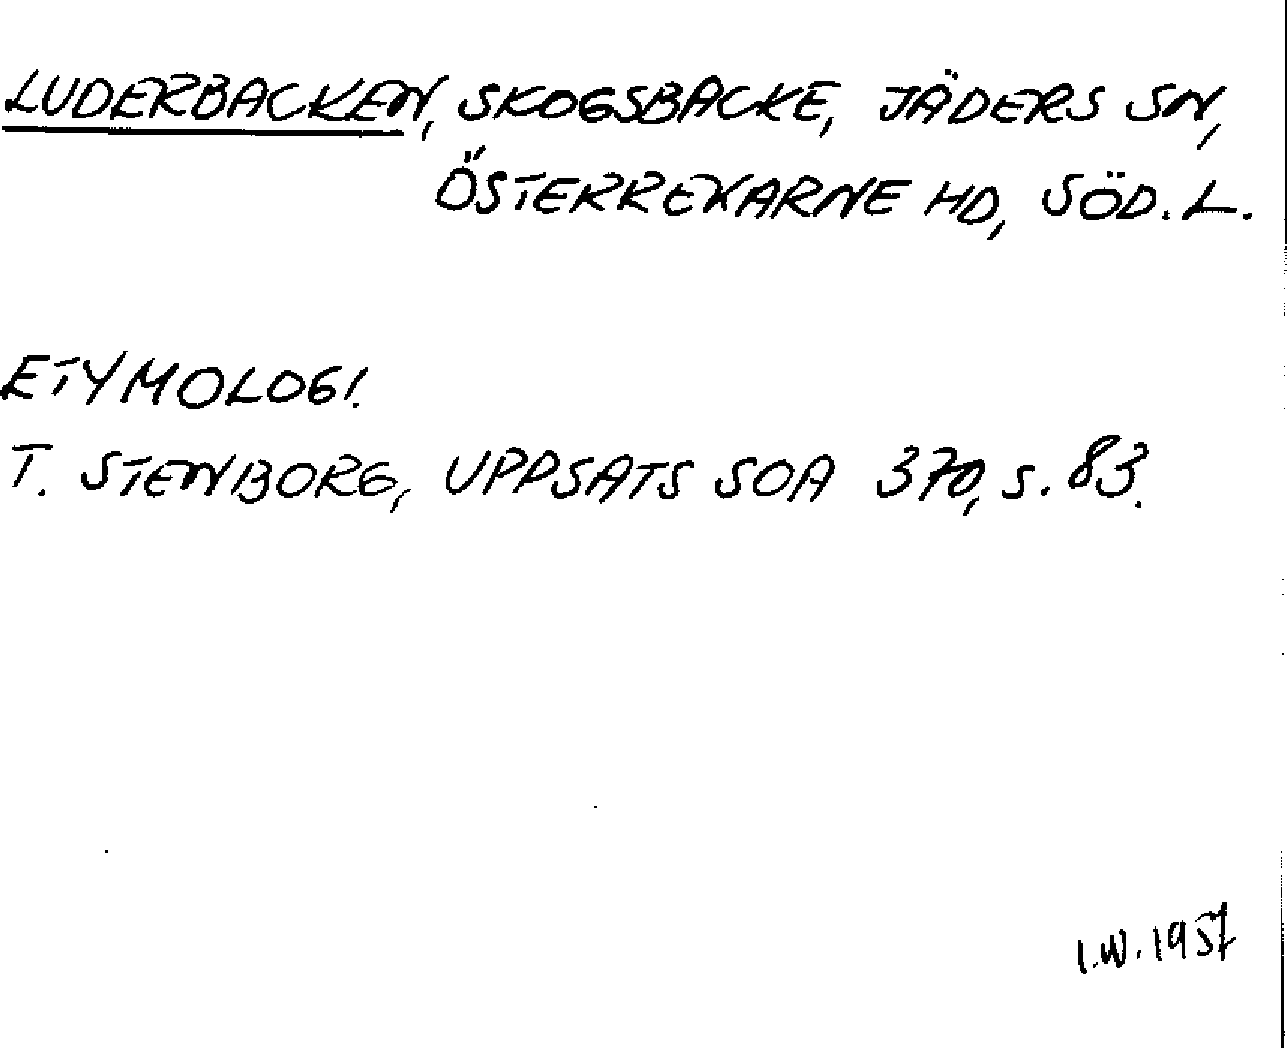 LUDERBACKEN, SKOGSBACKE, JÄDERS SN,
ÖSTERREKARNE HD, SÖD. L.
ETYMOLOGI.
T. STENBORG, UPPSATS SOA 370, S. 83.
I.W. 1957